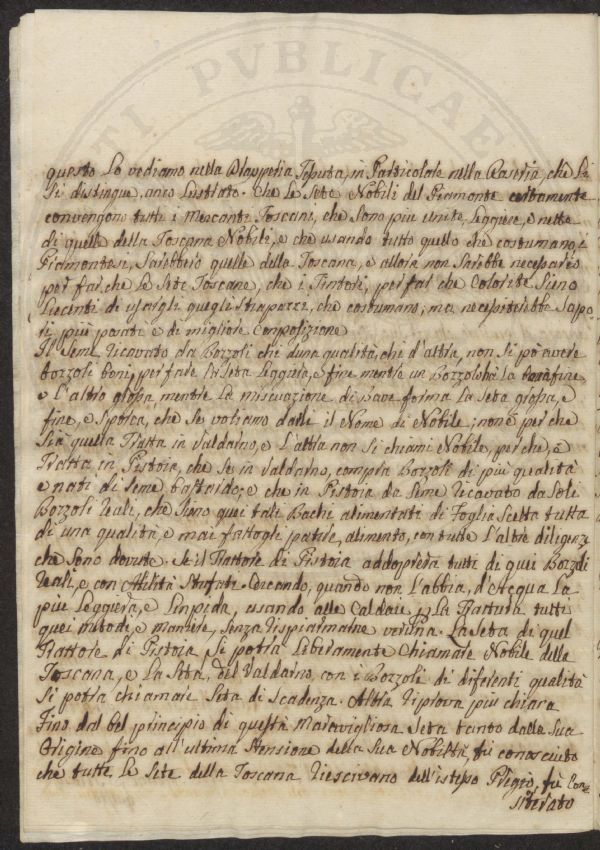 questo Lo vediamo nella Drapperia Tessuta, in Particolare nella Raseria, che Li
Si distingue, anco Lustrato. Che Le Sete Nobili del Piamonte certamente
convengono tutti i Merconti Toscani, che Sono più unite, Leggiere, e nette
di quelle della Toscana Nobili, e che usando tutto quello che costumano, i
Piamontesi, Sarebbero quelle della Toscana, e allora non Sarebbe necessario
per far, che Le Sete Toscane, che i Tintori, per far che Colorite Sieno
Lucenti di usargli quegli strapazzi, che costumano; ma necessiterebbe Sapo-
ri più posati e di migliore Composizione
Il Seme ricavato da Bozzoli chi d'una qualità, chi d'altra, non Si può avere
bozzoli boni, per fare La Seta Leggiera, e fine mentre un Bozzolo fà La fine
e L'altro grossa mentre La miscuazione di bave forma La Seta grossa, e
fine, e Sporca, che Se votiamo darli il Nome di Nobile; non è perche
Sia quella Tratta in Valdarno, e L'altra non Si chiami Nobile, perche, è
Tratta in Pistoia, che Se in Valdarno, compra Bozzoli di più qualità
e nati di Seme bastardo; e che in Pistoia da Seme ricavato da Soli
Bozzoli Reali, che Sieno quei tali Bachi alimentati di Foglia Scelta tutta
di una qualità e mai fattogli patire, alimento, con tutte L'altre diligenze
che Sono dovute. Se il Trattore di Pistoia addoprerà tutti di quei Bozzoli
reali, e con Attilità Stufati. Cercando, quando non L'abbia, d'Acqua La
più Leggiera, e Linpida, usando alle Caldaie, e La Trattura tutti
quei metodi, e maniere, Senza rispiarmarne veruna. La Seta di quel
Trattore di Pistoia Si potrà Liberamente Chiamare Nobile della
Toscana, e La Seta, del Valdarno, con i Bozzoli di diferenti qualità
Si potrà chiamare Seta di Scadenza. Altra riprova più chiara
Fino dal bel principio di questa Maravigliosa Seta tanto dalla Sua
Origine fino all'ultima Stensione della Sua Nobiltà, fù conosciuto
che tutte Le Sete della Toscana riescivano dell'istesso Pregio, fù Con-
siderato